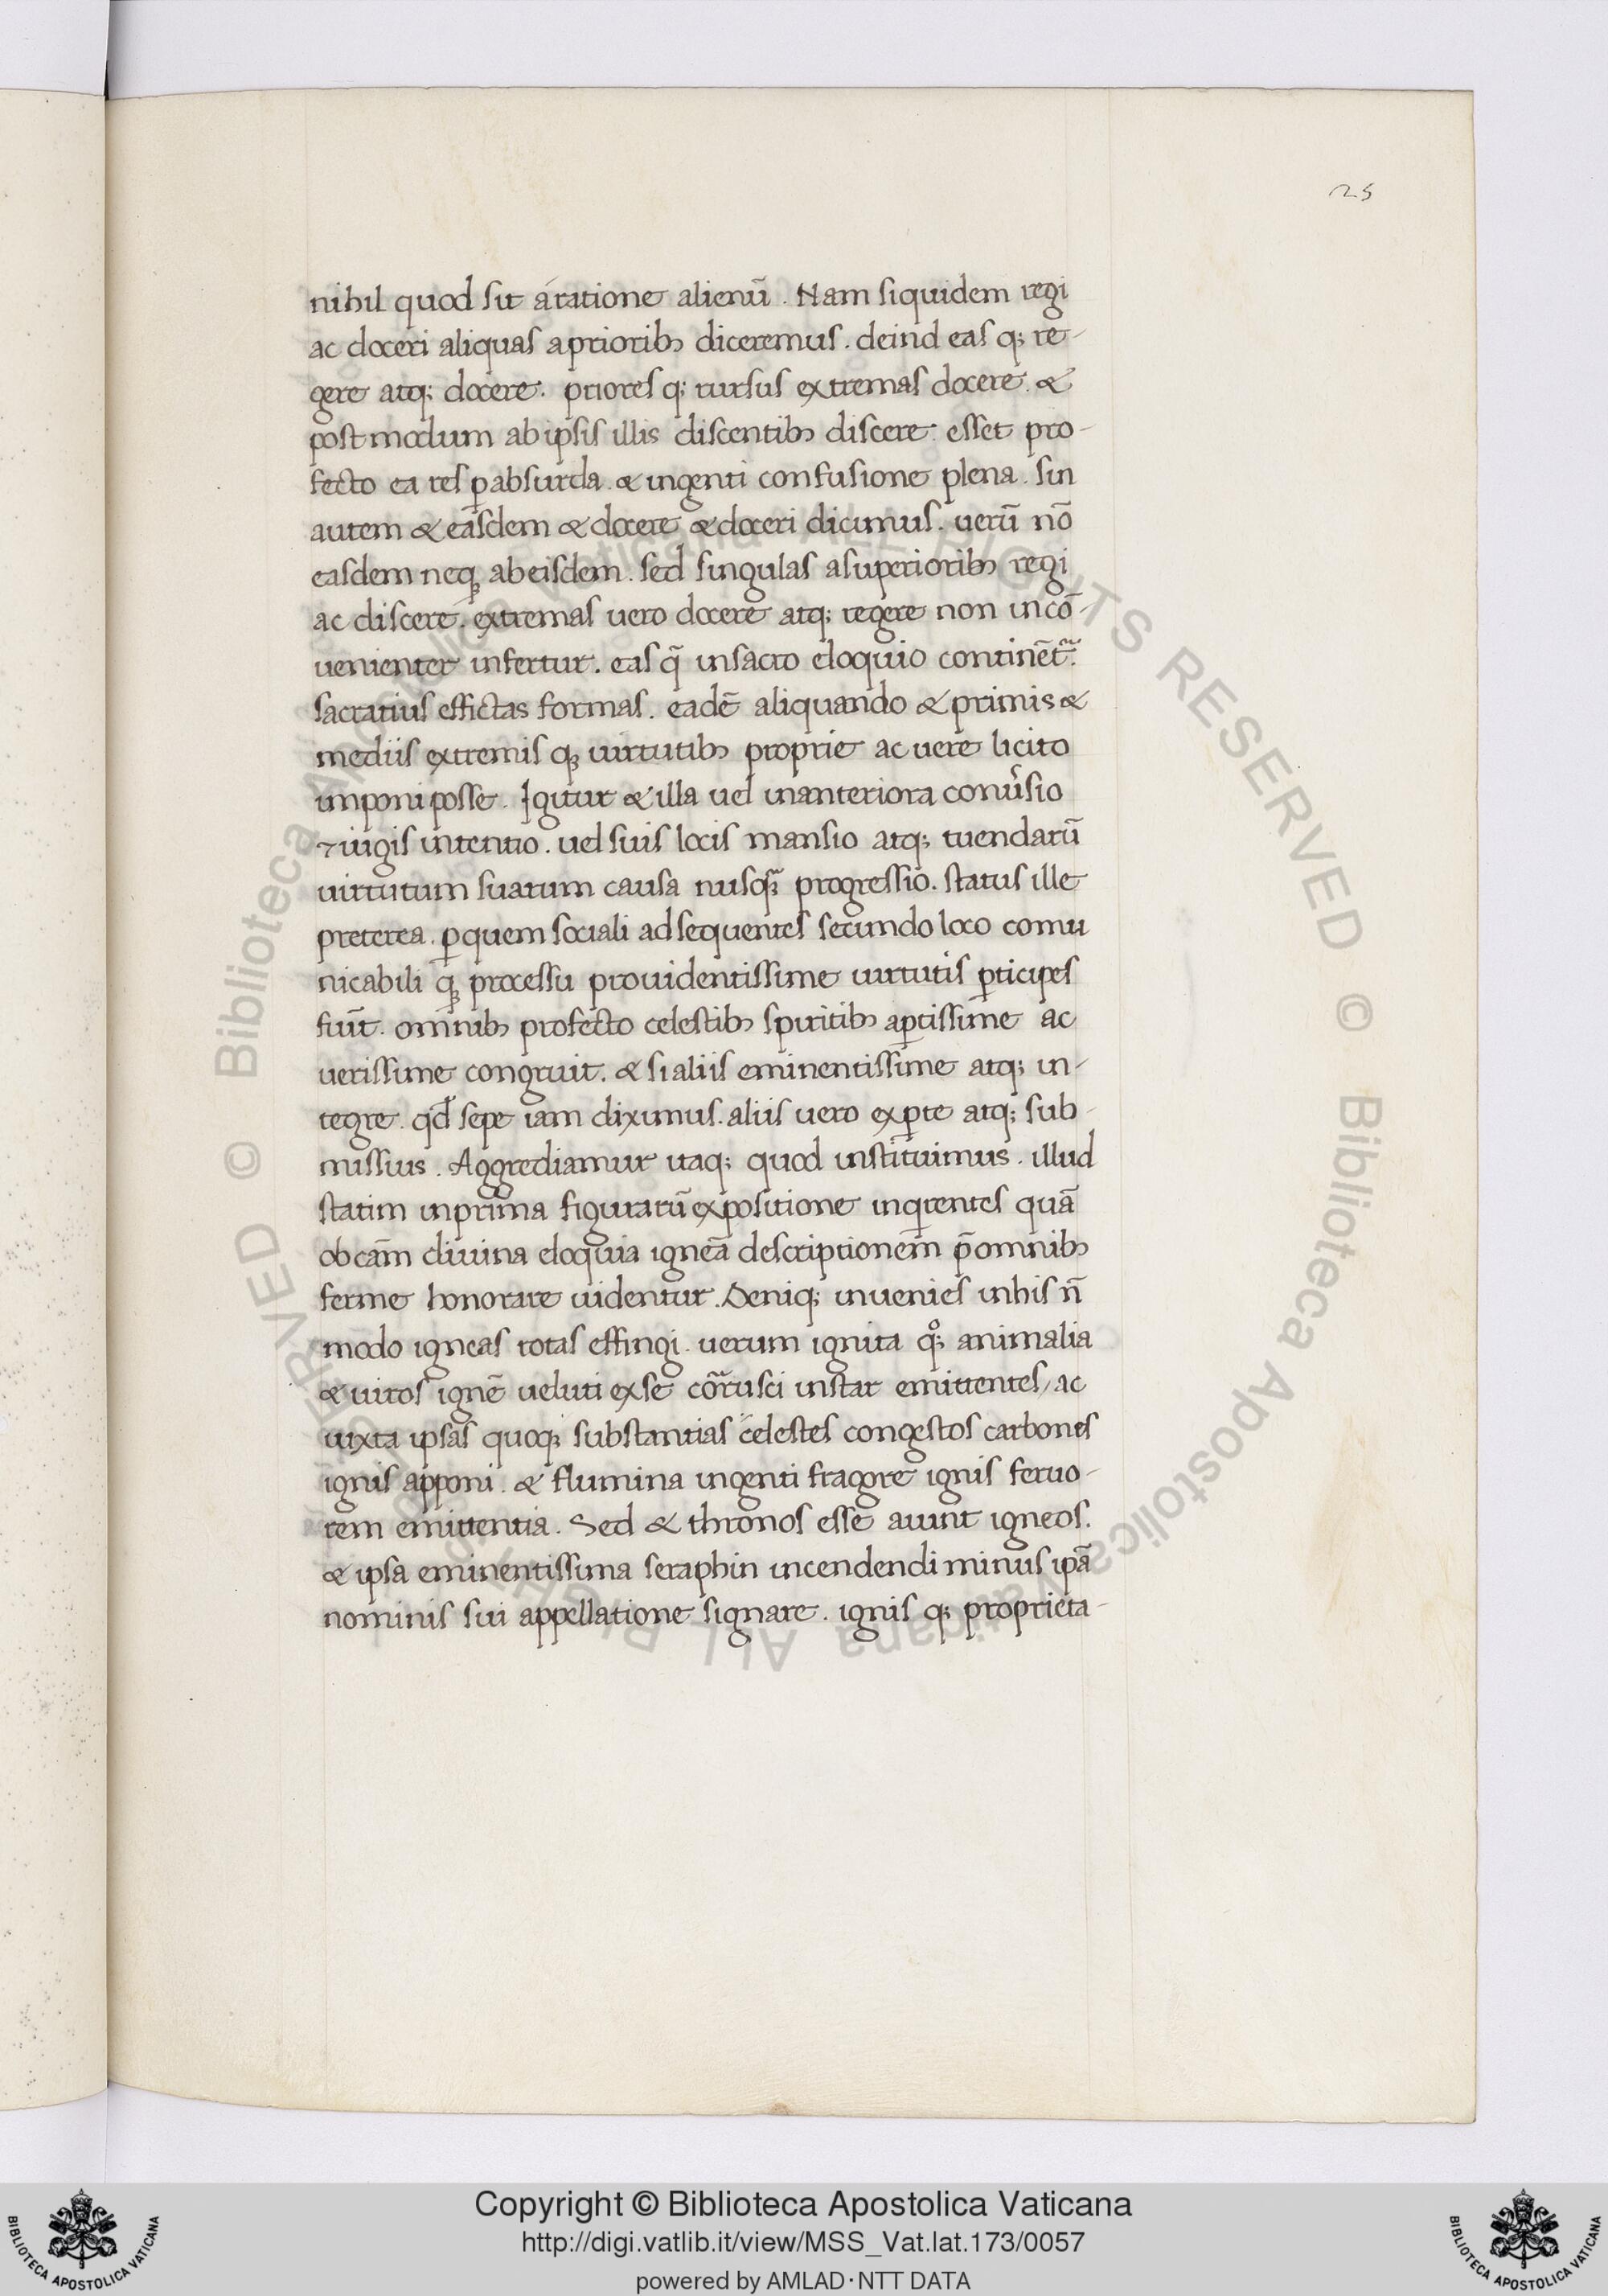 25
nihil quod sit a ratione alienū. Nam siquidem regi
ac doceri aliquas a priorib; diceremus. deind eas q; re-
gere atq; docere. priores q; rursus extremas docere. &
post modum ab ipsis illis discentib; discere. esset pro-
fecto ea res ꝑabsurda. & ingenti confusione plena. sin
autem & easdem & docere & doceri dicimus. uerū nō
easdem neq; ab eisdem. sed singulas a superiorib; regi
ac discere. extremas uero docere atq; regere non incō-
uenienter infertur. eas q̄ in sacro eloquio continēt᷑.
sacratius effictas formas. eadē aliquando & primis &
mediis extremis q; uirtutib; proprie ac uere licito
imponi posse. Igitur & illa uel in anteriora conuͥsio
⁊ iugis intentio. uel suis locis mansio atq; tuendarū
uirtutum suarum causa nusqꝫ̄ progressio. status ille
preterea. ꝑ quem sociali ad sequentes secundo loco comu
nicabili q; processu prouidentissime uirtutis ꝑticipes
fiūt. omnib; profecto celestib; spiritib; aꝑtissime ac
uerissime congruit. & si aliis eminentissime atq; in-
tegre. qd̄ sepe iam diximus. aliis uero ex ꝑte atq; sub-
missius. Aggrediamur itaq; quod instituimus. illud
statim in prima figurarū expositione inqͥrentes quā
ob cām diuina eloquia igneā descriptionem p̄ omnib;
ferme honorare uidentur. Deniq; inuenies in his n̄
modo igneas rotas effingi. uerum ignita qͦ; animalia
& uiros ignē ueluti ex se corrusci instar emittentes/ ac
iuxta ipsas quoq; substantias celestes congestos carbones
ignis apponi. & flumina ingenti fragore ignis feruo-
rem emittentia. Sed & thronos esse aiunt igneos.
& ipsa eminentissima seraphin incendendi minus ipā
nominis sui appellatione signare. ignis q; proprieta-
© Biblioteca Apostolica Vaticana ALL RIGHTS RESERVED © Biblioteca Apostolica Vaticana ALL RIGHTS RESERVED
Copyright © Biblioteca Apostolica Vaticana
http://digi.vatlib.it/view/MSS_Vat.lat.173/0057
powered by AMLAD·NTT DATA
BIBLIOTECA APOSTOLICA VATICANA
BIBLIOTECA APOSTOLICA VATICANA